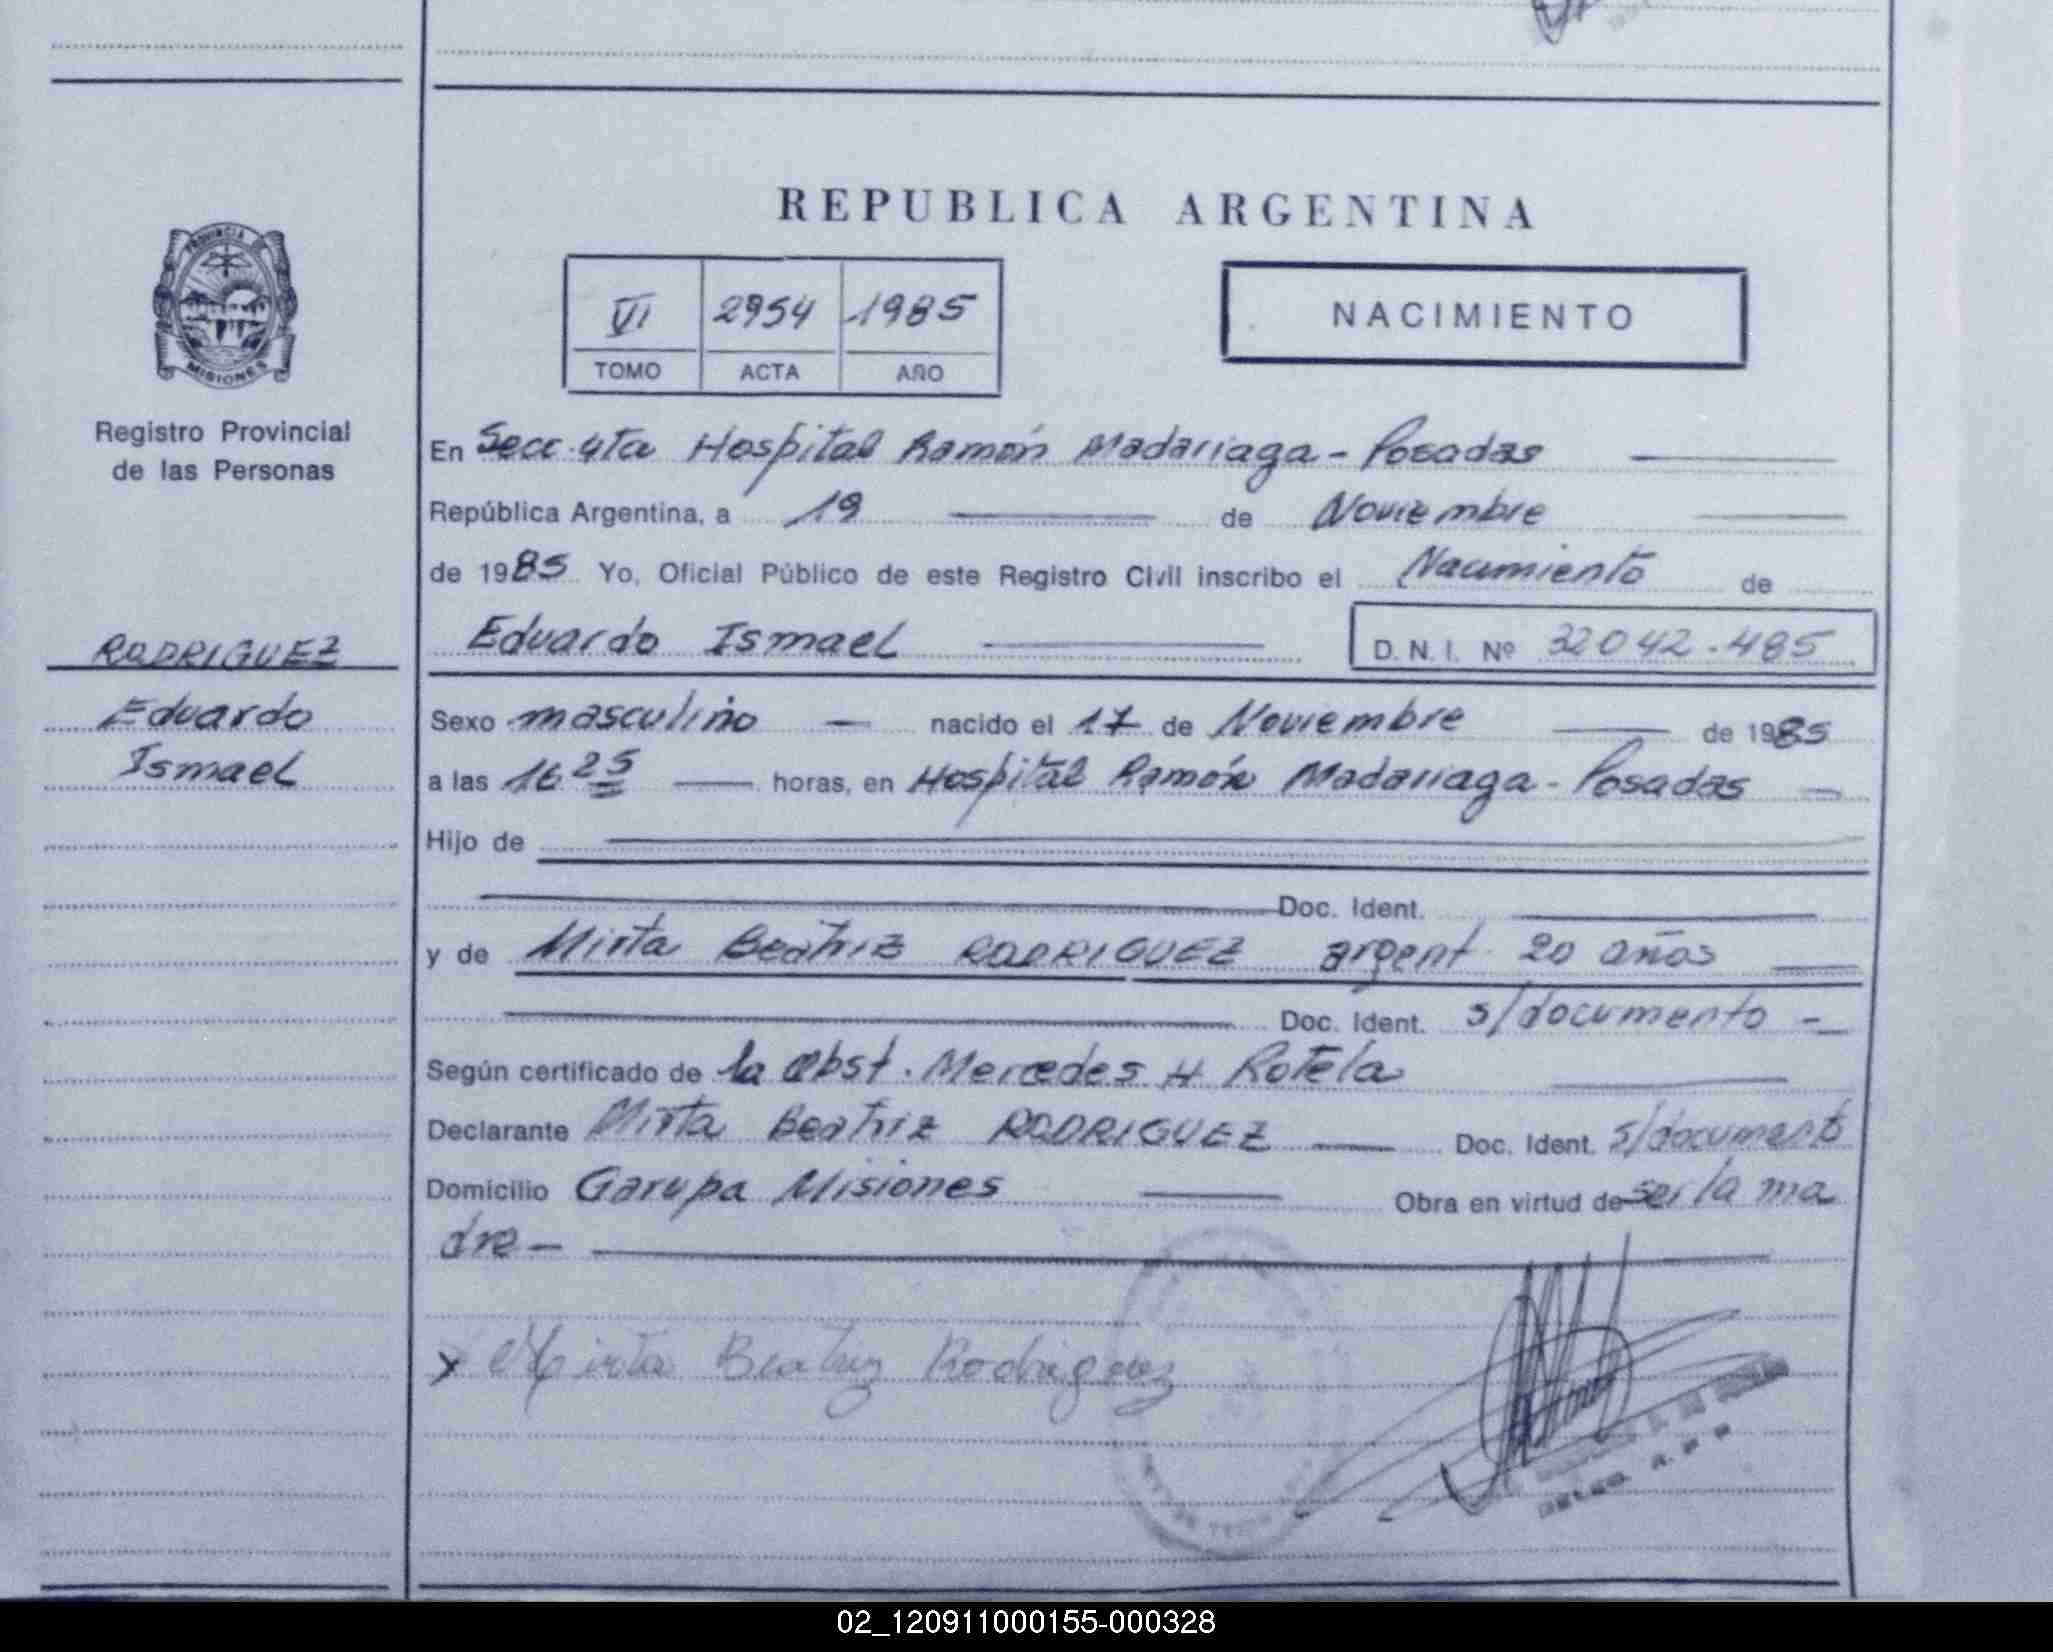 REPUBLICA ARGENTINA
PROVINCIA DE
MISIONES
Registro Provincial
de las Personas
VI 2954 1985
TOMO ACTA AÑO
NACIMIENTO
En Secc. 4ta Hospital Ramón Madariaga - Posadas
República Argentina, a 19 de Noviembre
de 1985 Yo, Oficial Público de este Registro Civil inscribo el Nacimiento de
Eduardo Ismael D. N. I. Nº 32042.485
RODRIGUEZ
Eduardo
Ismael
Sexo masculino nacido el 17 de Noviembre de 1985
a las 16 25 horas, en Hospital Ramón Madariaga - Posadas
Hijo de
Doc. Ident.
y de Mirta Beatriz RODRIGUEZ argent. 20 años
Doc. Ident. s/documento
Según certificado de la Obst. Mercedes H Rotela
Declarante Mirta Beatriz RODRIGUEZ Doc. Ident. s/documento
Domicilio Garupa Misiones Obra en virtud de ser la ma
dre
x Mirta Beatriz Rodriguez
02_120911000155-000328